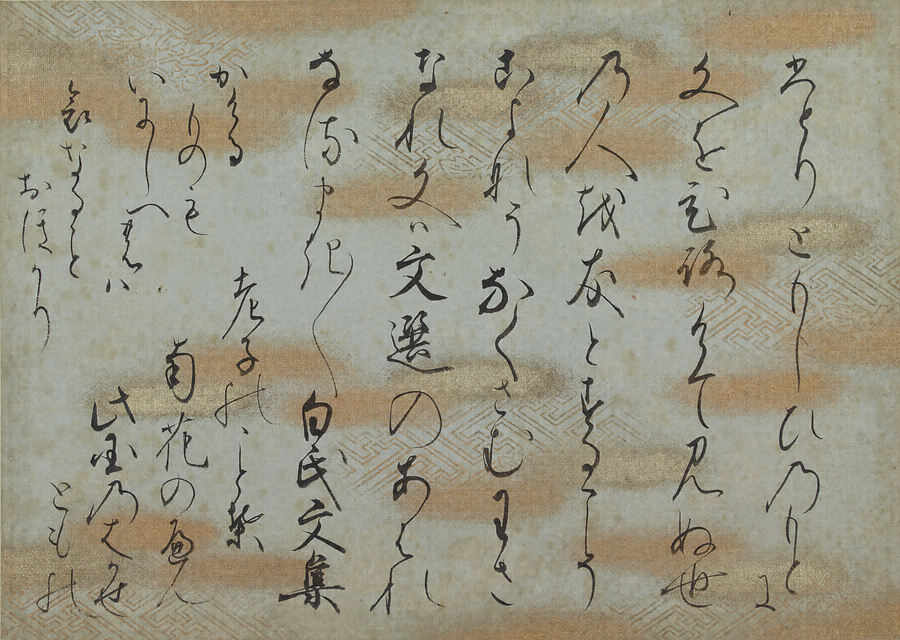 ひとりともしひのもとに
文をひろけて見ぬ世
の人を友とするこそ
こよなうなくさむわさ
なれ文は文選のあはれ
なるまき〳〵白氏文集
老子のこと葉
南花の篇
此国のはかせ
ともの
かける
ものも
いにしへのは
哀なること
おほかり